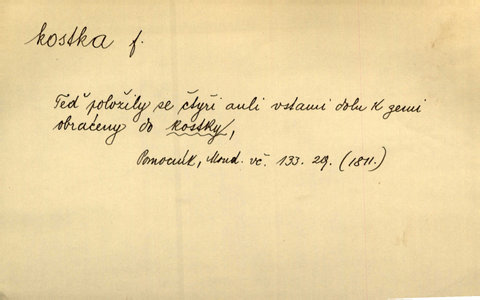 kostka f.
Teď položily se čtyři auli vstami dolu k zemi
obráceny do kostky,
Pomocník, Moud. vč. 133. 29. (1811.)